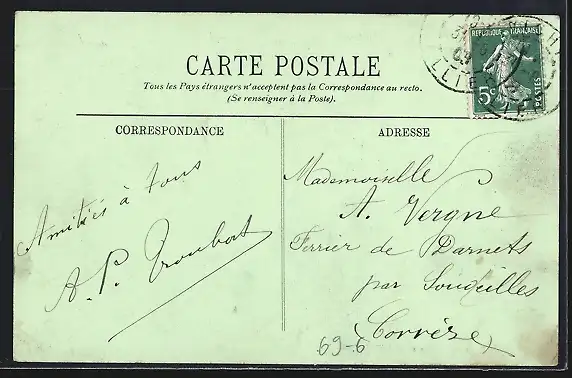 CARTE POSTALE
Tous les Pays étrangers n'acceptent pas la Correspondance au recto.
(Se renseigner à la Poste).
CORRESPONDANCE
Amitiés à tous
A. P. Troubat
ADRESSE
Mademoiselle
A. Vergne
Ferrier de Darnets
par Soudeilles
(Corrèze)
69-6
REPUBLIQUE FRANÇAISE
5c
POSTES